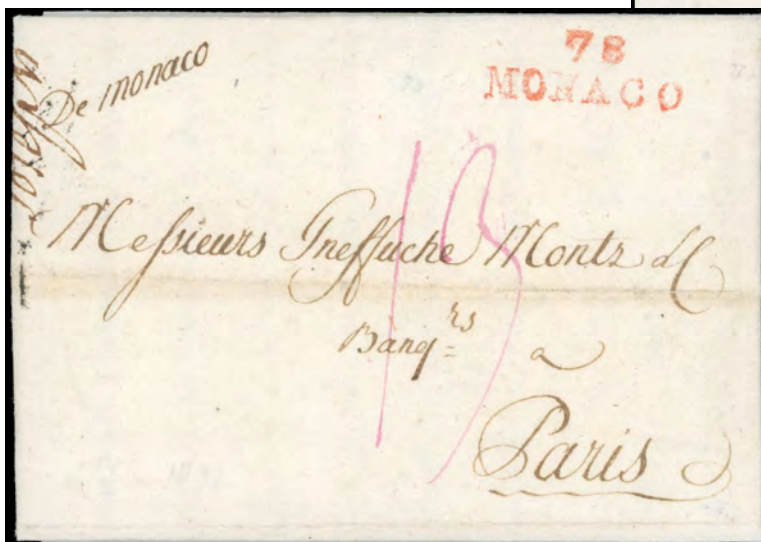 78
MONACO
De monaco
Messieurs Gneffuche Montz & C
Banq.rs à
Paris
13